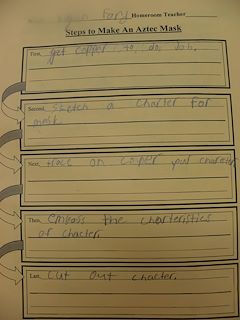 Homeroom Teacher
Steps to Make An Aztec Mask
First, get copper to do Job.
Second, sketch a charter for
mask.
Next, trace on copper your charater
Then, emboss the charteristics
of chacter.
Last, cut out chacter.